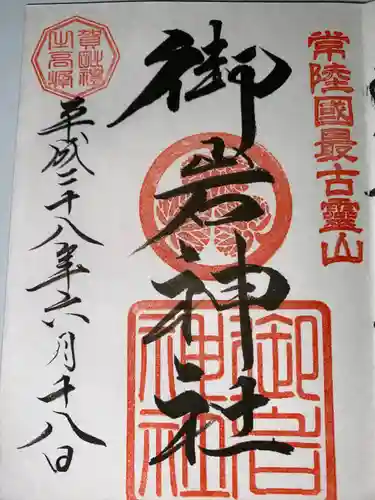 常陸國最古霊山
御岩神社
御岩神社
平成二十八年六月十八日